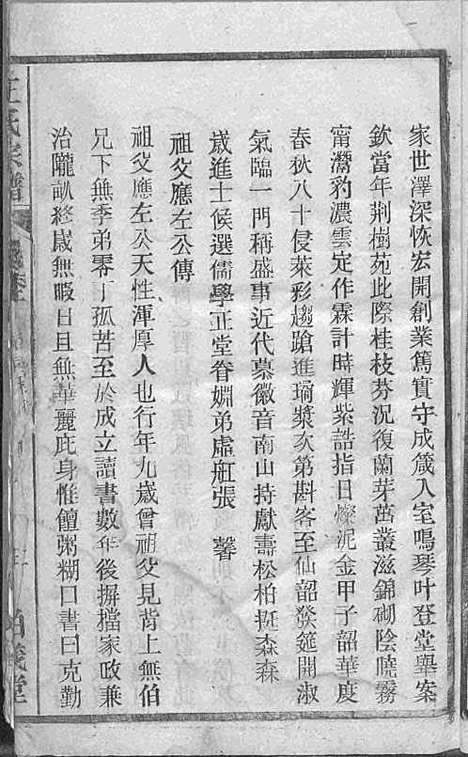 家世澤深恢宏開創業篤實守成箴入室鳴琴叶登堂舉案
欽當年荆樹苑此際桂枝芬況復蘭芽茁叢滋錦砌陰曉霧
甯濳豹濃雲定作霖計時輝紫誥指日燦泥金甲子韶華度
春秋八十侵萊彩趨蹌進瑀漿次第斟客至仙韶發筵開淑
氣臨一門稱盛事近代慕徽音南山持獻壽松柏挺森森
歲進士候選儒學正堂眷婣弟虛舡張　馨
祖父應左公傳
祖父應左公天性渾厚人也行年九歲曾祖父見背上無伯
兄下無季弟零丁孤苦至於成立讀書數年後摒檔家政兼
治隴畝終歲無暇日且無華麗庇身惟饘粥糊口書曰克勤
王氏宗譜